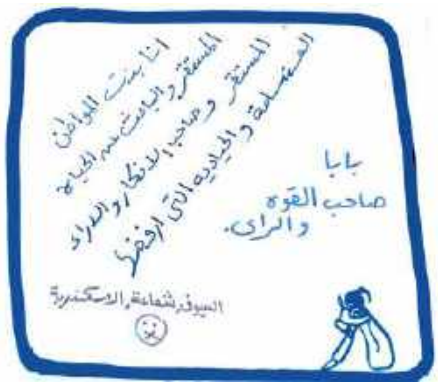 انا بنت المواطن
المستقر والباحث عن الحياة
المستقر وصاحب الافكار والاراء
و الحياديه التى ارفضها
بابا
صاحب القوه
والراى.
السيوف شماعة, الاسكندرية